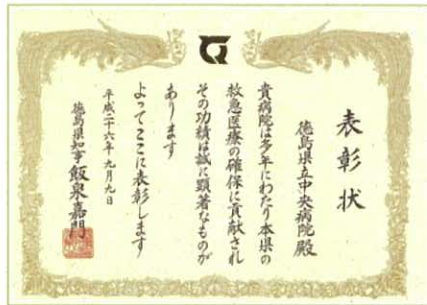 表彰状
徳島県立中央病院殿
貴病院は多年にわたり本県の
救急医療の確保に貢献され
その功績は誠に顕著なものが
あります
よってここに表彰します
平成二十六年九月九日
徳島県知事飯泉嘉門